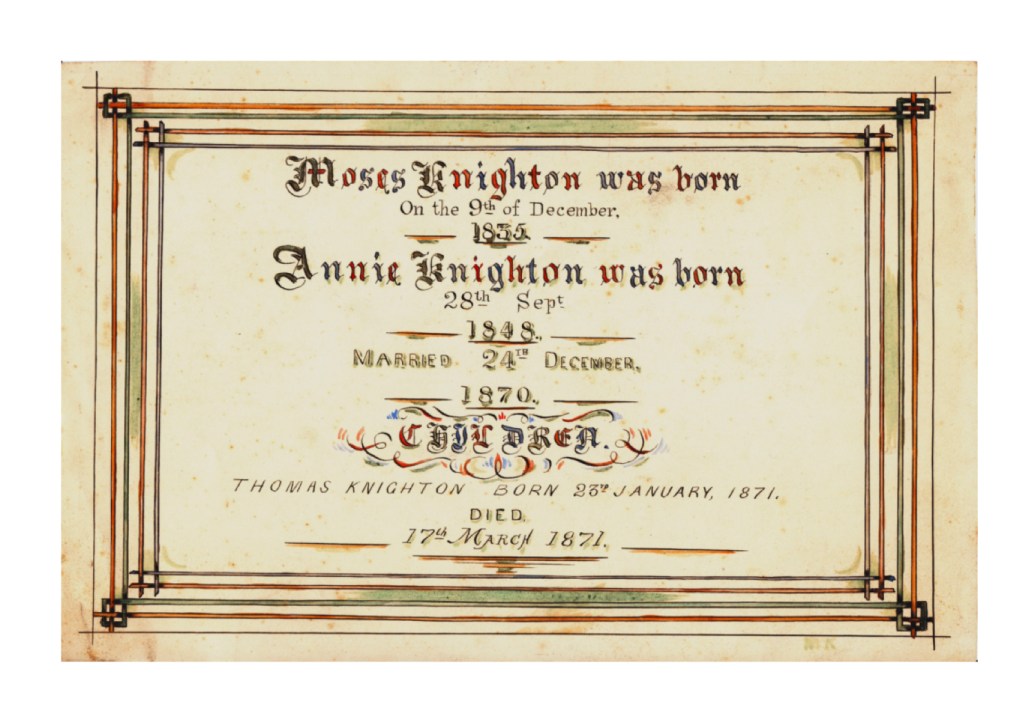 Moses Knighton was born
On the 9th of December.
1835.
Annie Knighton was born
28th Sept
1848.
MARRIED 24TH DECEMBER,
1870.
CHILDREN.
THOMAS KNIGHTON BORN 23rd JANUARY, 1871.
DIED.
17th MARCH 1871.
MK